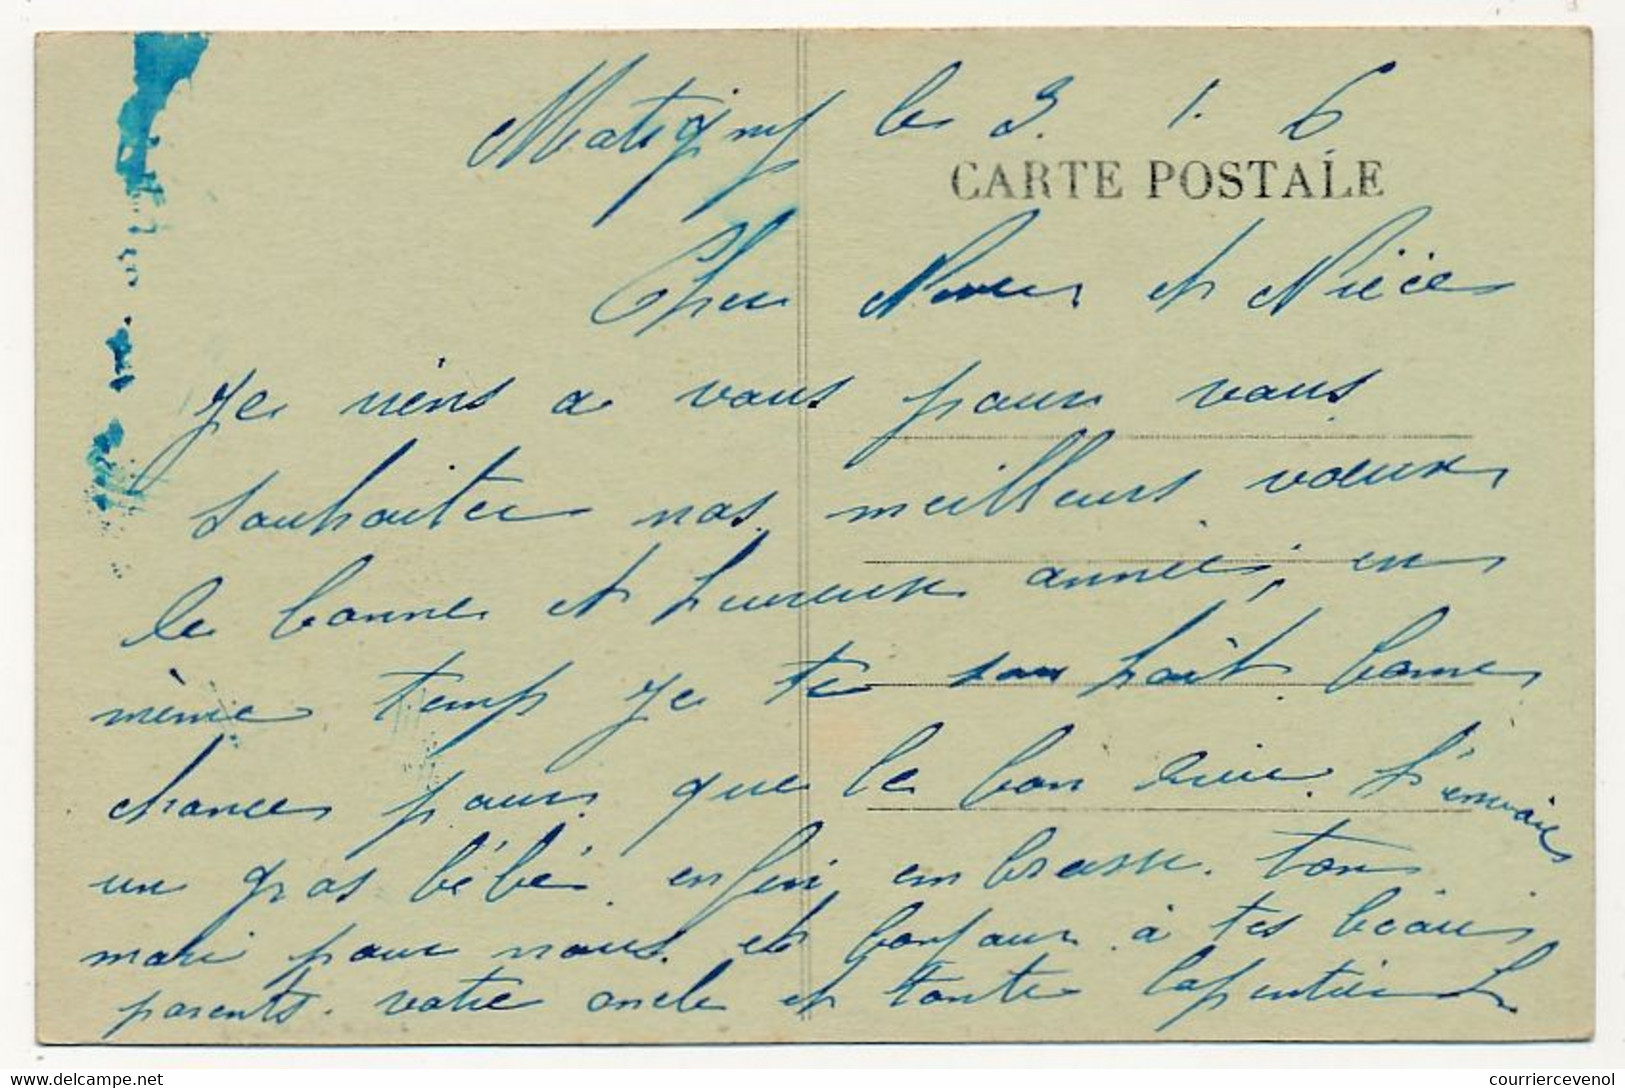 Matigny le 3. 1. 6
CARTE POSTALE
Cher Neveu et Nièce
Je viens a vous pour vous
souhaiter nos meilleurs vœux
le bonne et hureuse année, en
mème temps je te souhait bonne
chance pour que le bon dieu t'envoie
un gros bébé. enfin embrasse. ton
mari pour nous. et bonjour à tes beaux
parents. votre oncle et tante
courriercevenol
delcampe.net